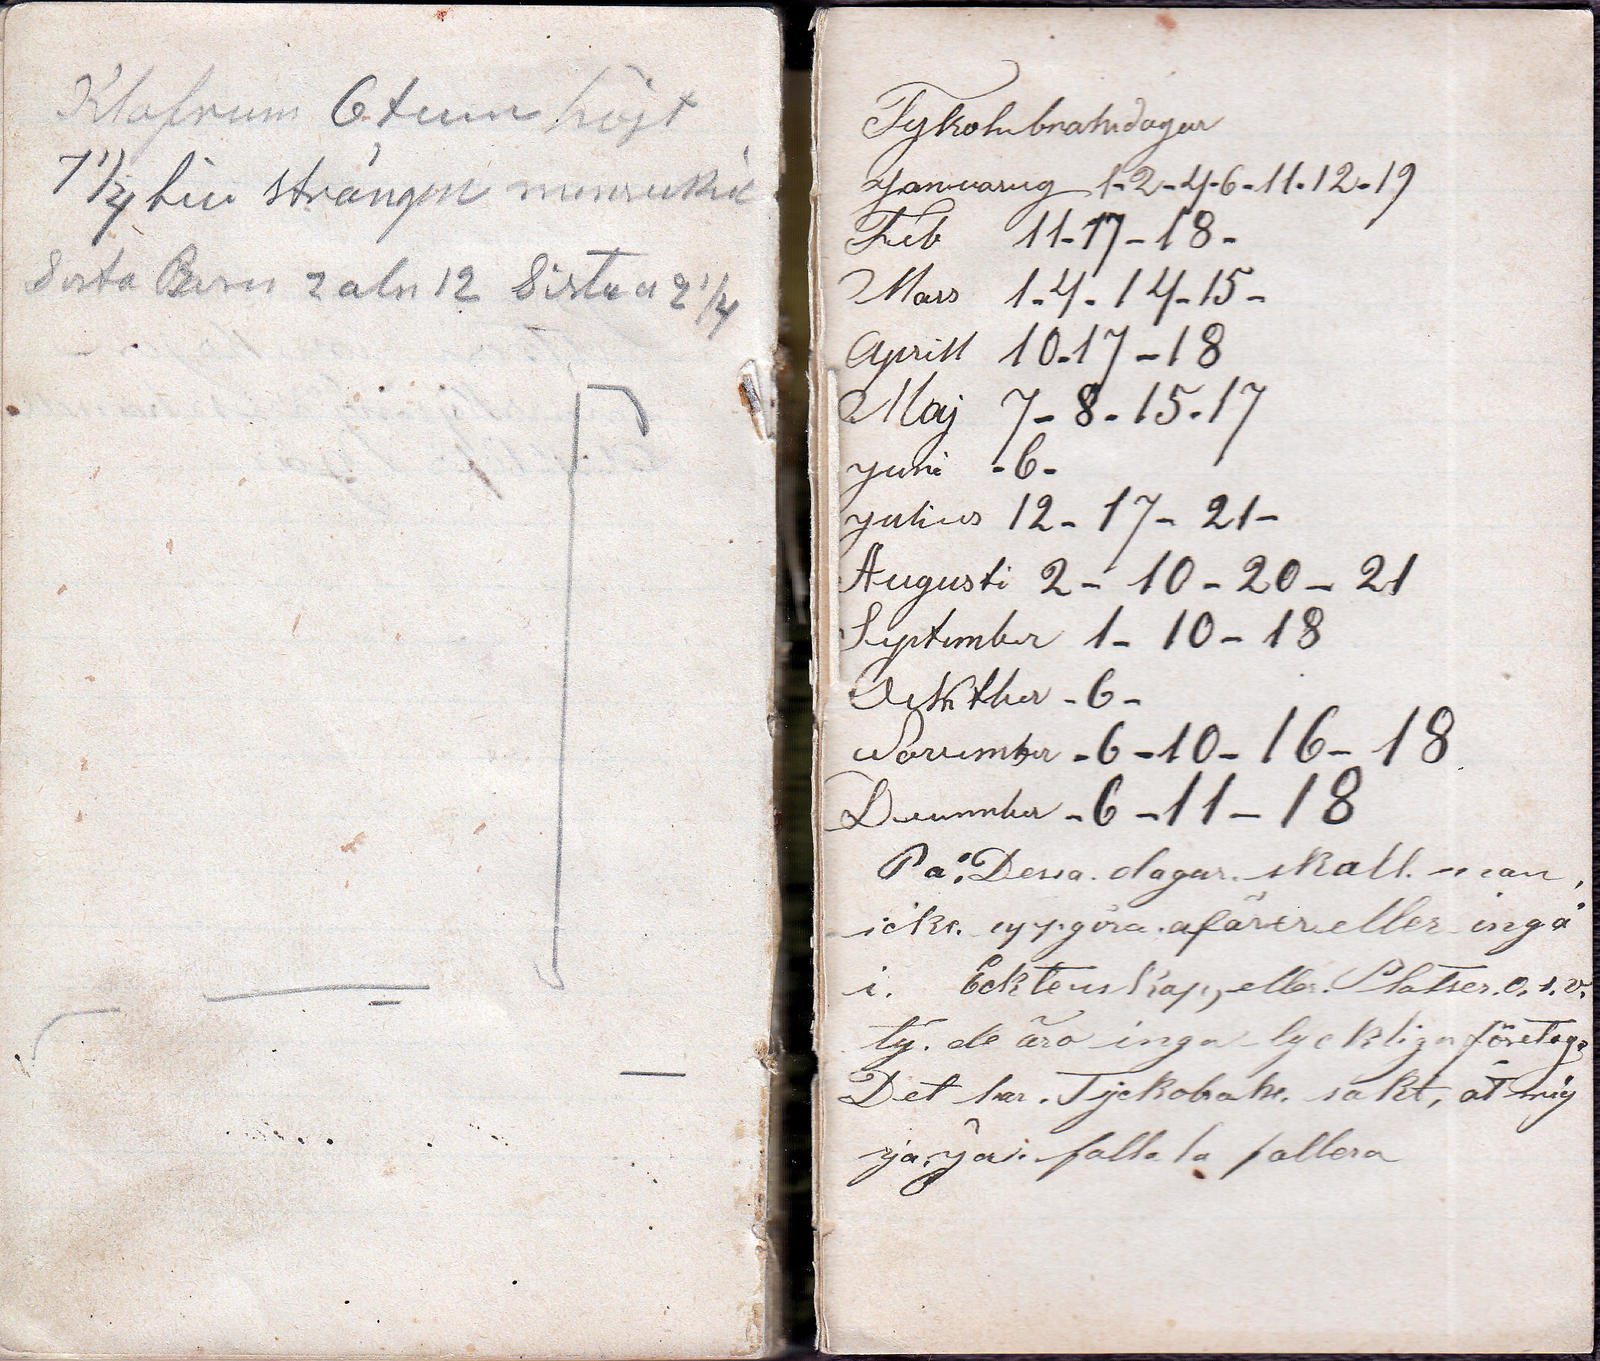 6 tum högt
7 1/4
Sista Barn 2 aln 12 Sista a 2 1/4
Tykobrahedagar
Januarug 1-2-4-6-11-12-19
Feb 11-17-18-
Mars 1-4-14-15-
Aprill 10-17-18
Maj 7-8-15-17
juni -6-
julius 12-17-21-
Augusti 2-10-20-21
September 1-10-18
-6-
November -6-10-16-18
December -6-11-18
På Dessa. dagar. skall. man,
icke. uppgöra. afärer eller ingå
i. Ecktenskap, eller. Platser. o. s. v.
ty. de äro inga lyckliga företag
Det har. Tyckobrahe. sakt, at
ja, ja. falla la fallera